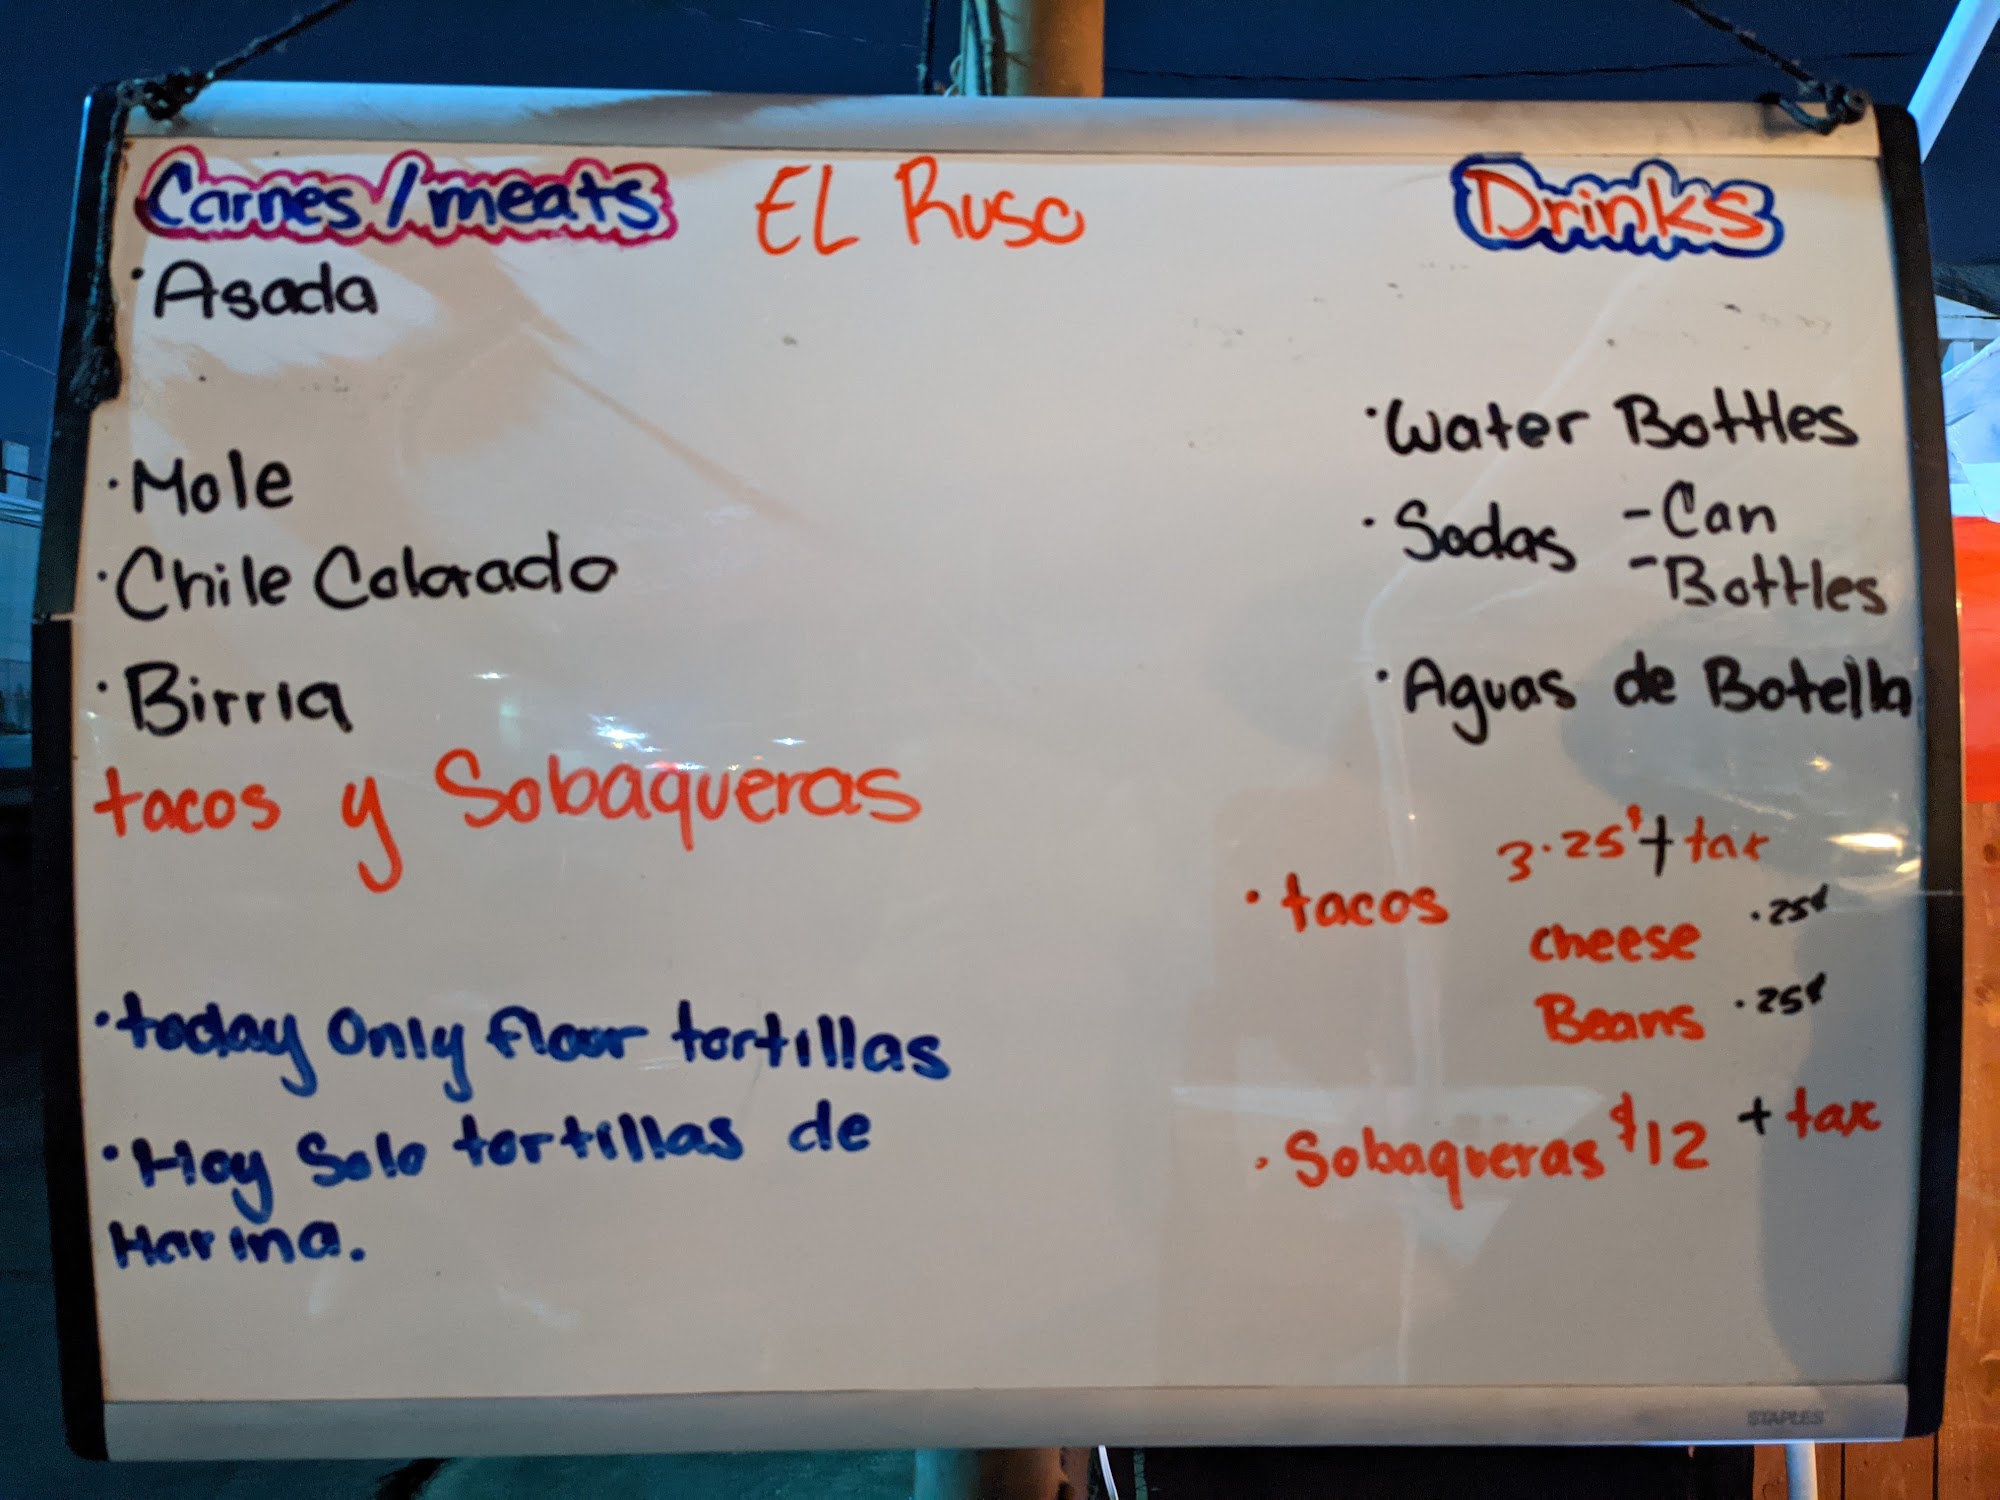 Carnes/meats
EL Ruso
Drinks
·Asada
·Mole
·Chile Colorado
·Birria
tacos y Sobaqueras
·today Only floor tortillas
·Hoy Solo tortillas de
Harina.
·Water Bottles
·Sodas -Can
-Bottles
·Aguas de Botella
3.25 + tax
·tacos
cheese .25¢
Beans .25¢
·Sobaqueras $12 + tax
STAPLES